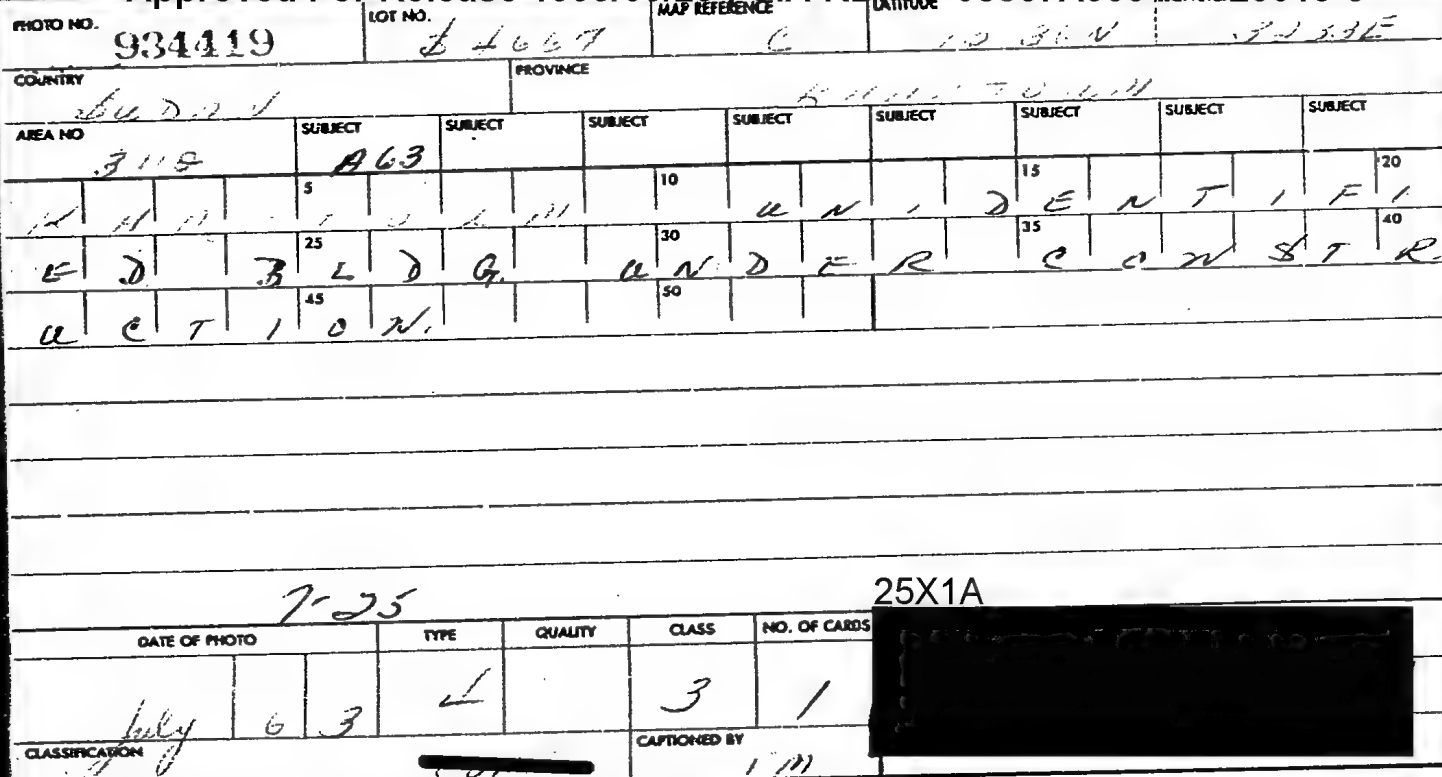 Approved For Release
PHOTO NO. 934419 LOT NO. MAP REFERENCE C LATITUDE
COUNTRY SUDAN PROVINCE KHARTOUM
AREA NO SUBJECT A63 SUBJECT SUBJECT SUBJECT SUBJECT SUBJECT SUBJECT SUBJECT
5 10 15 20
KHARTOUM UNIDENTIFI
25 30 35 40
ED BLDG. UNDER CONSTR
45 50
UCTION.
7-25
25X1A
DATE OF PHOTO TYPE QUALITY CLASS NO. OF CARDS
July 63 3 1
CLASSIFICATION CAPTIONED BY